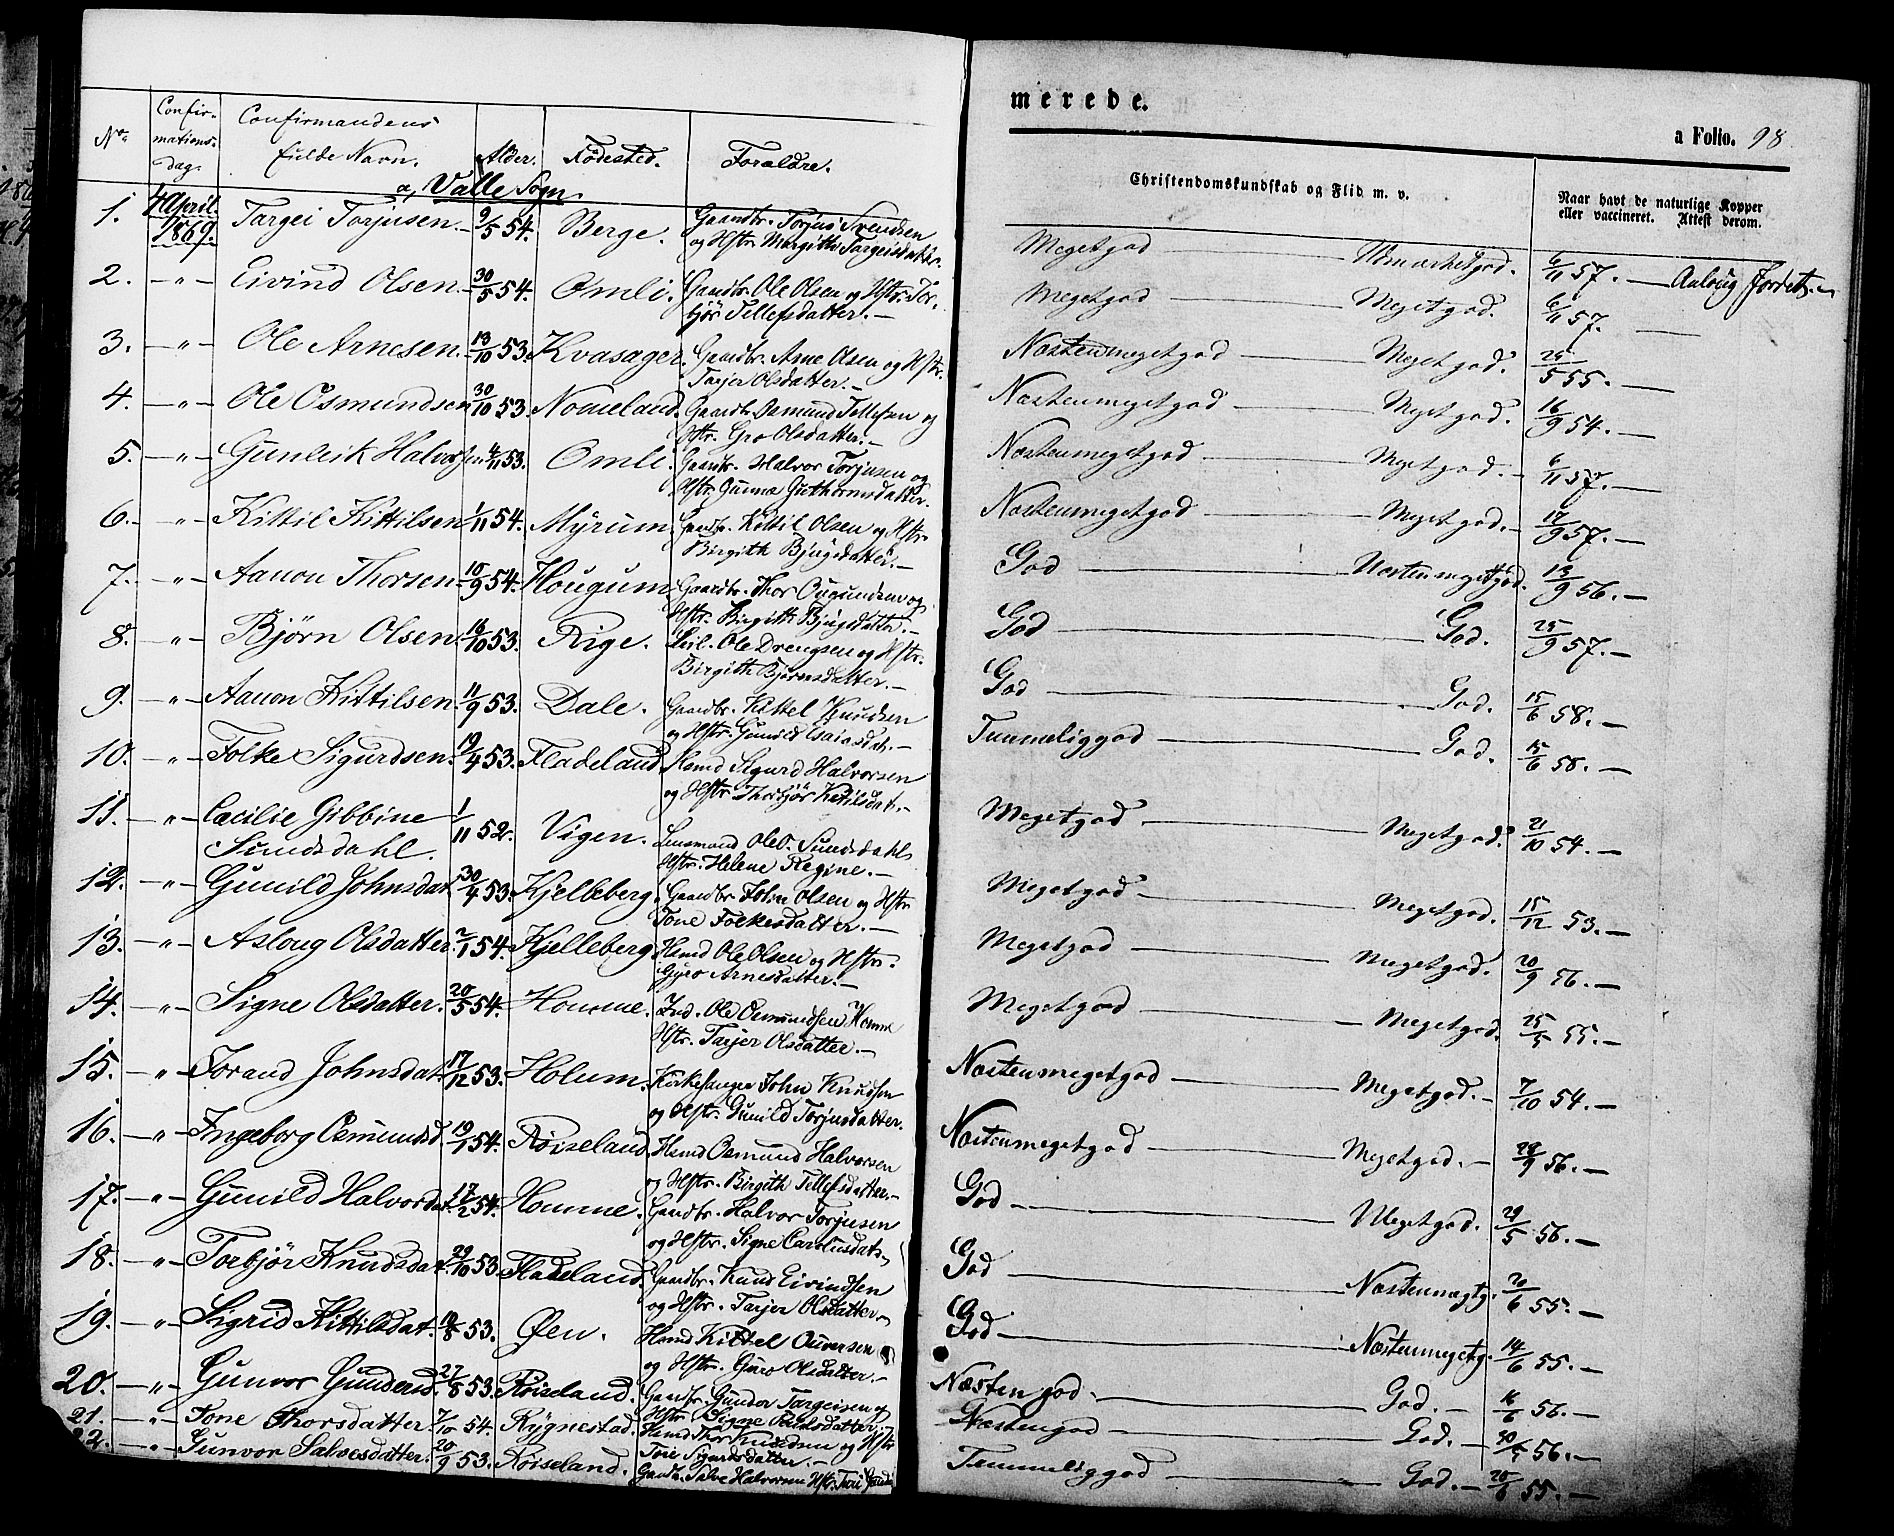 merede.
a Folio. 98
No. Confirmationsdag. Confirmandens fulde Navn. Alder. Fødested. Forældre.
Christendomskundskab og Flid m. v.
Naar havt de naturlige Kopper
eller vaccineret. Attest derom.
a, Valle Sogn
1. 4 April 1869. Targei Torjusen. 9/5 54. Berge. Gaardbr. Torjus Svendsen
og Hstr. Margith Targeisdatter.
Megetgod — Udmærketgod. 6/11 57. —
2. — " — Eivind Olsen. 30/5 54. Omli. Gaardbr. Ole Olsen og Hstr. Tor-
bjør Tellefsdatter. —
Megetgod — Megetgod. 6/11 57. —
3. — " — Ole Arnesen. 13/10 53. Kvasager. Gaardbr. Arne Olsen og Hstr.
Tarjer Olsdatter. —
Næstenmegetgod — Megetgod. 25/5 55. —
4. — " — Ole Osmundsen 30/10 53. Nomeland. Gaardbr. Osmund Tellefsen og
Hstr. Gro Olsdatter. —
Næstenmegetgod — Megetgod. 16/9 54. —
5. — " — Gunleik Halvorsen 4/11 53. Omli. Gaardbr. Halvor Torjusen og
Hstr. Gunne Guthormsdatter.
Næstenmegetgod — Megetgod. — 6/11 57. —
6. — " — Kittil Kittilsen 1/11 54. Myrum. Gaardbr. Kittil Olsen og Hstr.
Birgith Bjugsdatter. —
Næstenmegetgod — Megetgod. — 17/9 57. —
7. — " — Aanon Thorsen 10/9 54. Hougum. Gaardbr. Thor Ougundsen og
Hstr. Birgith Bjugsdatter. —
God — Næstenmegetgod. 13/9 56. —
8. — " — Bjørn Olsen. 16/10 53. Rige. Leil. Ole Drengsen og Hstr.
Birgith Bjørnsdatter. —
God — God. 25/9 57. —
9. — " — Aanon Kittilsen. 11/9 53. Dale. Gaardbr. Kittel Knudsen
og Hstr. Gunild Esaiasdat. —
God — God. 15/6 58. —
10. — " — Folke Sigurdsen. 19/4 53. Fladeland. Hsmd Sigurd Halvorsen
og Hstr. Thorbjør Ketilsdat. —
Temmeliggod — God. 15/6 58. —
11. — " — Cæcilie Gibbine
Sundsdahl. 1/11 52. Vigen. Lensmand Ole O. Sundsdahl
Hstr. Helene Regine. —
Megetgod — Megetgod. 21/10 54. —
12. — " — Gunild Johnsdat. 30/4 53. Kjelleberg. Gaardbr. John Olsen og Hstr
Tone Folkesdatter. —
Megetgod — Megetgod. 15/12 53. —
13. — " — Asloug Olsdatter. 2/1 54. Kjelleberg. Hsmd Ole Olsen og Hstr.
Gyro Arnesdatter. —
Megetgod — Megetgod. 20/9 56. —
14. — " — Signe Olsdatter. 20/5 54. Homme. Ind. Ole Osmundsen Homme
Hstr. Tarjer Olsdatter. —
Megetgod — Megetgod. 25/5 55. —
15. — " — Torand Johnsdat. 17/12 53. Holum. Kirkesanger John Knudsen
og Hstr. Gunild Torjusdatter.
Næstenmegetgod — Megetgod. — 7/10 54. —
16. — " — Ingeborg Osmundsd. 19/1 54. Røiseland. Hsmd Osmund Halvorsen
og Hstr. Birgith Tellefsdatter. —
Næstenmegetgod — Megetgod. — 28/9 56. —
17. — " — Gunild Halvorsdat. 17/2 54. Homme. Gaardbr. Halvor Torjusen
og Hstr. Signe Carolusdat. —
God — Megetgod. 29/5 56. —
18. — " — Torbjør Knudsdat. 29/10 53. Fladeland. Gaardbr. Knud Eivindsen
og Hstr. Tarjer Olsdatter. —
God — Næstenmegtg. 20/6 55. —
19. — " — Sigrid Kittilsdat. 19/8 53. Øen. Hsmd Kittel Ouversen
og Hstr. Guro Olsdatter. —
God — Næstenmegetg. 14/6 55. —
20. — " — Gunvor Gundersd. 27/8 53. Røiseland. Gaardbr. Gundor Targeisen og
Hstr. Signe
Næsten god. — God. — 16/6 56. —
21. — " — Tone Thorsdatter 7/10 54. Rygnestad. Hsmd Thor Knudsen og Hstr
Tore Sigurdsdatter. —
Næstengod — God. — 56. —
22. — " — Gunvor Salvesdatter. 20/9 53. Røiseland. Gaardbr. Salve Halvorsen Hstr.
Temmeliggod — God. — 20/6 55. —